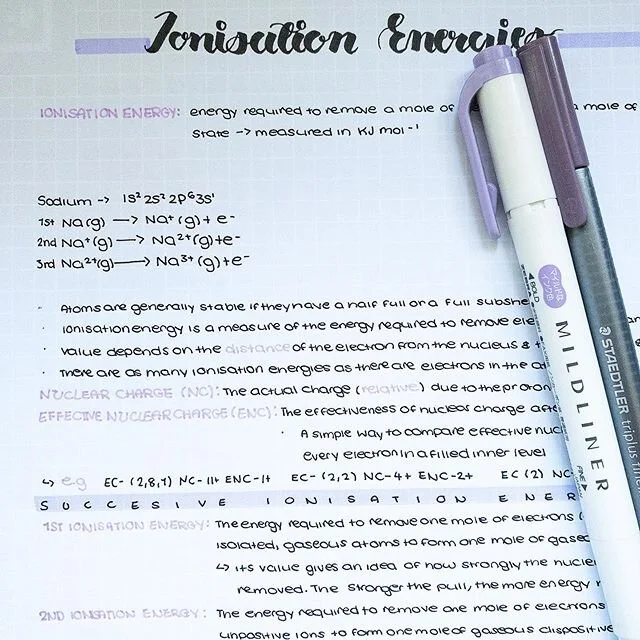 Ionisation Energies
IONISATION ENERGY: energy required to remove a mole of a mole of
state -> measured in KJ mol⁻¹
Sodium -> 1s² 2s² 2p⁶ 3s¹
1st Na(g) -> Na⁺(g) + e⁻
2nd Na⁺(g) -> Na²⁺(g) + e⁻
3rd Na²⁺(g) -> Na³⁺(g) + e⁻
- Atoms are generally stable if they have a half full or a full subshe
· Ionisation energy is a measure of the energy required to remove ele
· Value depends on the distance of the electron from the nucleus &
· There are as many ionisation energies as there are electrons in the
NUCLEAR CHARGE (NC): The actual charge (relative) due to the proton
EFFECTIVE NUCLEAR CHARGE (ENC): The effectiveness of nuclear charge afte
· A simple way to compare effective nuc
every electron in a filled inner level
↳ e.g EC- (2,8,1) NC-11+ ENC-1+ EC- (2,2) NC-4+ ENC-2+ EC (2) NC
SUCCESIVE IONISATION ENER
1ST IONISATION ENERGY: The energy required to remove one mole of electrons
isolated, gaseous atoms to form one mole of gase
↳ its value gives an idea of how strongly the nucle
removed. The stronger the pull, the more energy
2ND IONISATION ENERGY: The energy required to remove one mole of electrons
unipositive ions to form one mole of gaseous dispositive
BOLD
マイルドなインク色
MILDLINER
FINE
STAEDTLER triplus fine